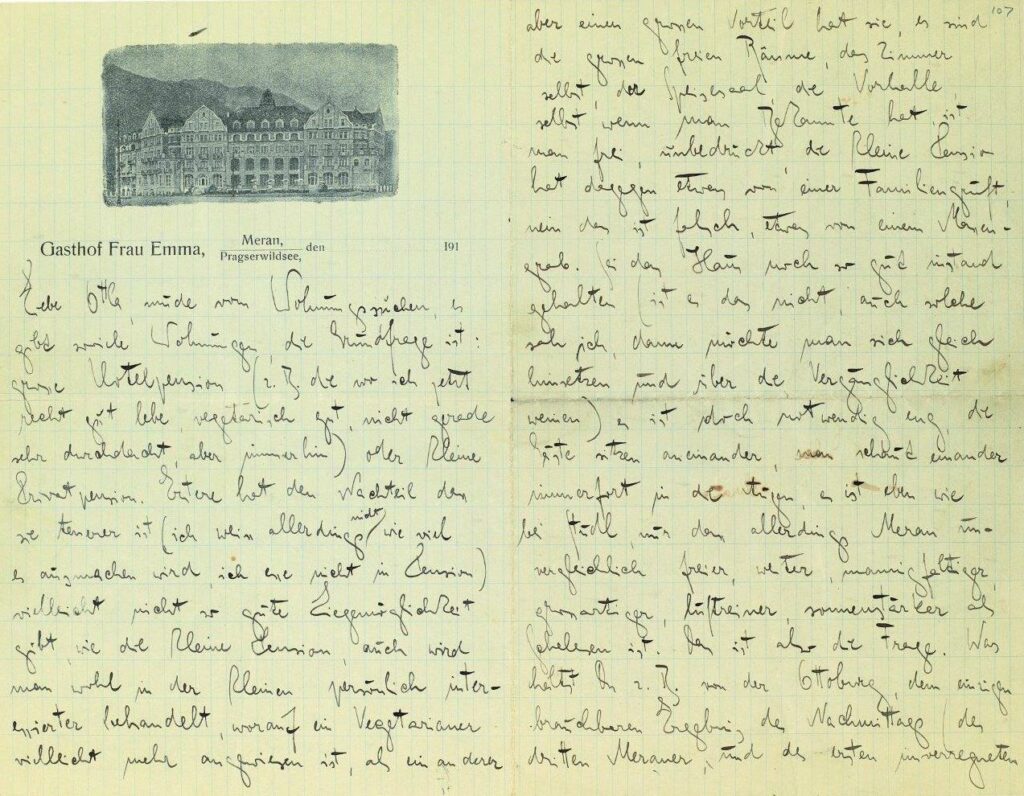 Gasthof Frau Emma, Meran, Pragserwildsee, den 191
Liebe Ottla, müde vom Wohnungssuchen, es
gibt soviele Wohnungen, die Grundfrage ist:
grosse Hotelpension (z. B. die wo ich jetzt
recht gut lebe, vegetarisch gut, nicht gerade
sehr durchdacht, aber immerhin) oder kleine
Privatpension. Erstere hat den Nachteil dass
sie teuerer ist (ich weiss allerdings nicht wie viel
es ausmachen wird, ich esse nicht in Pension)
vielleicht nicht so gute Liegemöglichkeit
gibt, wie die kleine Pension, auch wird
man wohl in der kleinen persönlich inter-
essierter behandelt, worauf ein Vegetarianer
vielleicht mehr angewiesen ist, als ein anderer
107
aber einen grossen Vorteil hat sie, es sind
die grossen freien Räume, das Zimmer
selbst, der Speisesaal, die Vorhalle,
selbst wenn man Bekannte hat, ist
man frei, unbedrückt, die kleine Pension
hat dagegen etwas von einer Familiengruft,
nein das ist falsch, etwas von einem Massen-
grab. Sei das Haus noch so gut instand
gehalten (ist es das nicht, auch solche
sah ich, dann möchte man sich gleich
hinsetzen und über die Vergänglichkeit
weinen) es ist doch notwendig eng, die
Gäste sitzen aneinander, man schaut einander
immerfort in die Augen, es ist eben wie
bei Stüdl, nur dass allerdings Meran un-
vergleichlich freier, weiter, mannigfaltiger,
grossartiger, luftreiner, sonnenstärker als
Schelesen ist. Das ist also die Frage. Was
hältst Du z. B. von der Ottoburg, dem einzigen
brauchbaren Ergebnis des Nachmittags (des
dritten Meraner, und des ersten unverregneten